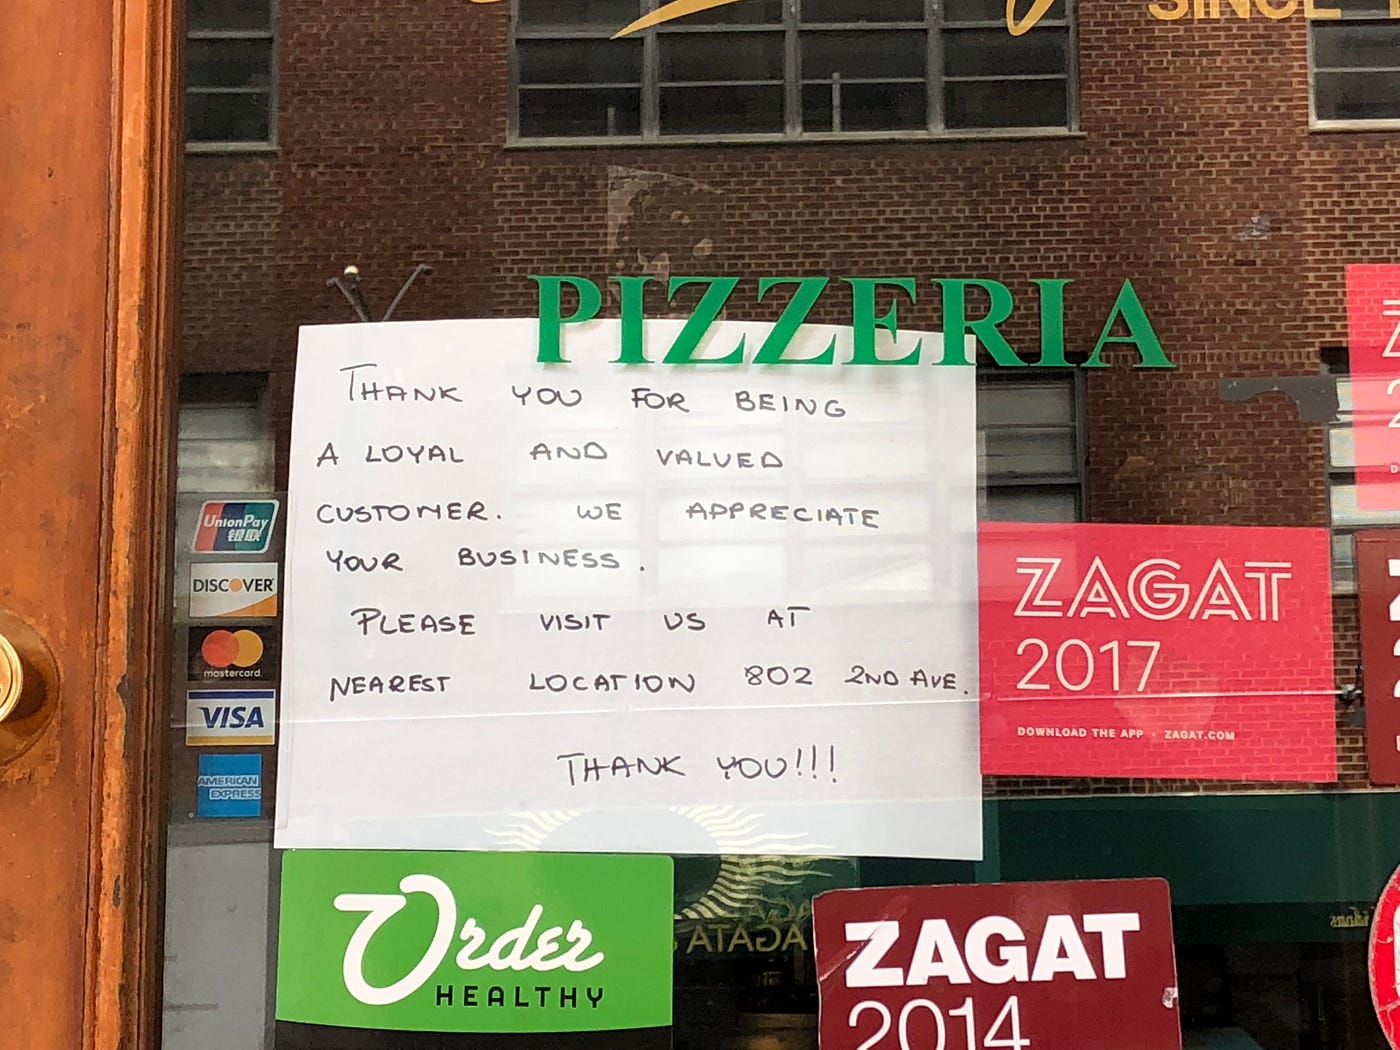 SINCE
PIZZERIA
THANK YOU FOR BEING
A LOYAL AND VALUED
CUSTOMER. WE APPRECIATE
YOUR BUSINESS.
PLEASE VISIT US AT
NEAREST LOCATION 802 2ND AVE.
THANK YOU!!!
UnionPay
银联
DISCOVER
mastercard
VISA
AMERICAN
EXPRESS
ZAGAT
2017
DOWNLOAD THE APP · ZAGAT.COM
Order
HEALTHY
ZAGAT
2014